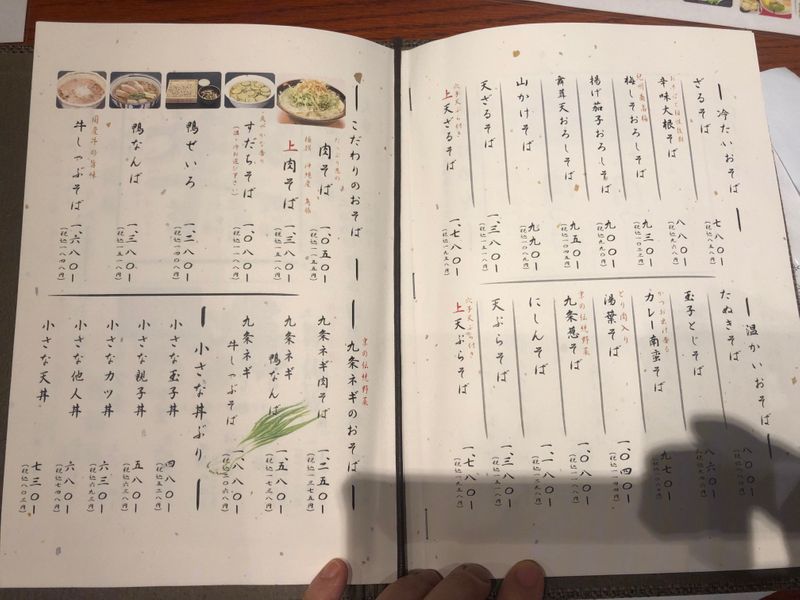 冷たいおそば
ざるそば
七八〇ー
辛味大根そば
八八〇ー
(税込九六八円)
紀州南高梅
梅しそおろしそば
九三〇ー
(税込一〇二三円)
揚げ茄子おろしそば
九〇〇ー
(税込九九〇円)
舞茸天おろしそば
九五〇ー
(税込一〇四五円)
山かけそば
九九〇ー
天ざるそば
一、三八〇ー
(税込一五一八円)
穴子天ぷら付き
上天ざるそば
一、七八〇ー
(税込一九五八円)
温かいおそば
たぬきそば
八〇〇ー
玉子とじそば
八六〇ー
かつお出汁香る
カレー南蛮そば
九七〇ー
とり肉入り
湯葉そば
一、〇四〇ー
京の伝統野菜
九条葱そば
一、〇八〇ー
にしんそば
一、一八〇ー
天ぷらそば
一、三八〇ー
(税込一五一八円)
穴子天ぷら付き
上天ぷらそば
一、七八〇ー
(税込一九五八円)
こだわりのおそば
肉そば
一、〇五〇ー
(税込一一五五円)
上肉そば
一、三八〇ー
(税込一五一八円)
すだちそば
(温・冷お選び下さい)
一、〇八〇ー
(税込一一八八円)
鴨せいろ
一、二八〇ー
(税込一四〇八円)
鴨なんば
一、三八〇ー
(税込一五一八円)
国産牛の旨味
牛しゃぶそば
一、六八〇ー
(税込一八四八円)
京の伝統野菜
九条ネギのおそば
九条ネギ肉そば
一、二五〇ー
(税込一三七五円)
九条ネギ
鴨なんば
一、五八〇ー
(税込一七三八円)
九条ネギ
牛しゃぶそば
一、八八〇ー
小さな丼ぶり
小さな玉子丼
四八〇ー
(税込五二八円)
小さな親子丼
五八〇ー
(税込六三八円)
小さなカツ丼
六三〇ー
(税込六九三円)
小さな他人丼
六八〇ー
(税込七四八円)
小さな天丼
七三〇ー
(税込八〇三円)